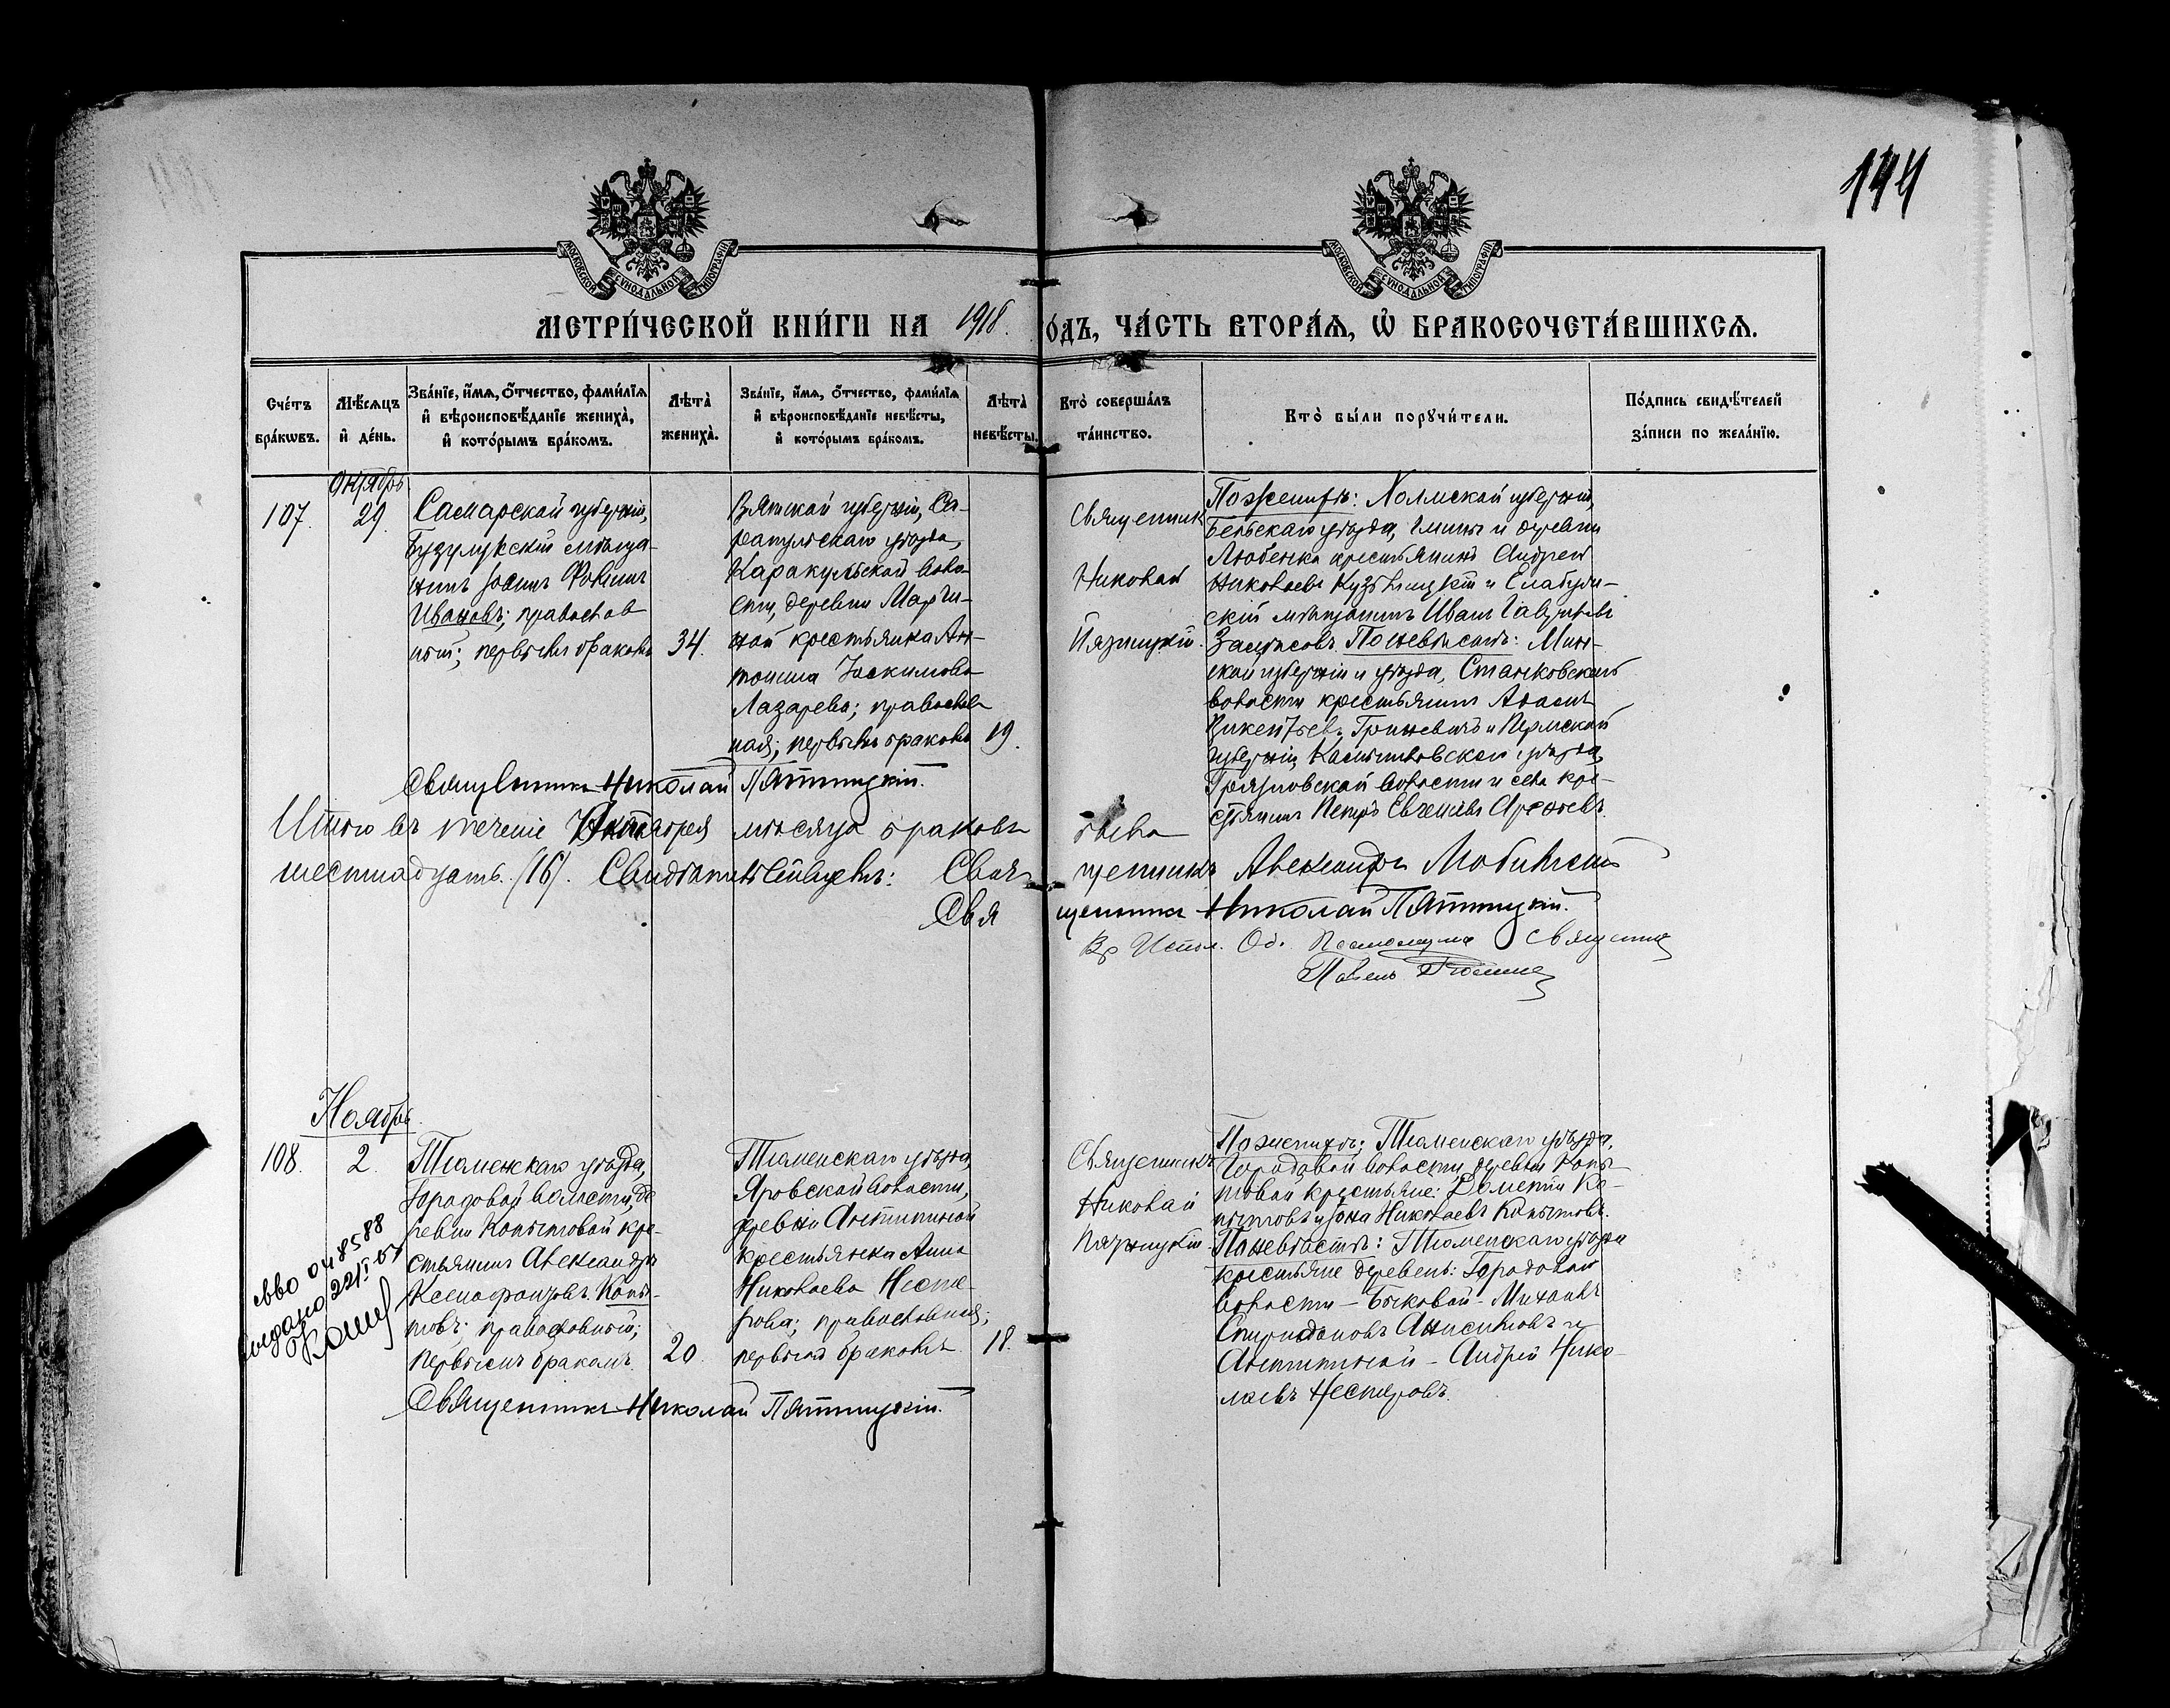 144
МОСКОВСКОЙ СѴНОДАЛЬНОЙ ТИПОГРАФІИ
МОСКОВСКОЙ СѴНОДАЛЬНОЙ ТИПОГРАФІИ
МЕТРИ́ЧЕСКОЙ КНИ́ГИ НА 1918. ГО́ДЪ, ЧА́СТЬ ВТОРА́Я, Ѿ БРАКОСОЧЕТА́ВШИХСЯ.
Сче́тъ бра́кѡвъ.
Мѣ́сяцъ и де́нь.
Зва́нїе, и́мя, о́тчество, фами́лїя
и вѣроисповѣ́данїе жениха̀,
и кото́рымъ бра́комъ.
Лѣта̀ жениха̀.
Зва́нїе, и́мя, о́тчество, фами́лїя
и вѣроисповѣ́данїе невѣ́сты,
и кото́рымъ бра́комъ.
Лѣта̀ невѣ́сты.
Кто̀ соверша́лъ
та́инство.
Кто̀ бы́ли порꙋчи́тели.
По́дпись свидѣ́телей
за́писи по жела́нїю.
Октябрь
107.
29.
Самарской губерніи,
Бузулукскій мѣща-
нинъ Іоаннъ
Ивановъ; православ
ный; первымъ бракомъ
34.
Вятской губерніи, Са-
рапульскаго уѣзда,
Каракульской воло-
сти, деревни Марги-
ной крестьянка Ан-
тонина Іоакимова
Лазарева; православ
ная; первымъ бракомъ
19.
Священникъ
Николай
Пятницкій.
По женихѣ: Холмской губерніи,
Бельскаго уѣзда, гмины и деревни
Любенка крестьянинъ Андрей
Николаевъ и Елабуж-
скій мѣщанинъ Иванъ Гавріиловъ
По невѣстѣ: Мин-
ской губерніи и уѣзда, Станковской
волости крестьянинъ Адамъ
Викентьевъ Гриневичъ и Пермской
губерніи уѣзда,
Грязновской волости и села кре-
стьянинъ Петръ Евгеніевъ
Священникъ Николай Пятницкій.
Итого въ теченіе Октября мѣсяца браковъ было
шестнадцать (16). Свидѣтельствуемъ: Священникъ Александръ
Священникъ Николай Пятницкій.
Вр. Испол. Об. Псаломщика Священникъ
Павелъ
Ноябрь.
108.
2.
Тюменскаго уѣзда,
Городовой волости, де
ревни Копытовой кре-
стьянинъ Александръ
Ксенофонтовъ Копы-
товъ; православный;
первымъ бракомъ.
20.
Тюменскаго уѣзда,
Яровской волости,
деревни Антипиной
крестьянка Анна
Николаева Несте-
рова; православная;
первымъ бракомъ.
18.
Священникъ
Николай
Пятницкій
По женихѣ: Тюменскаго уѣзда,
Городовой волости, деревни Копы-
товой крестьяне: Дометій Ко-
пытовъ и Іона Николаевъ Копытовъ.
По невѣстѣ: Тюменскаго уѣзда
крестьяне деревень: Городовой
волости - Быковой - Михаилъ
Спиридоновъ Анисимовъ и
Антипиной - Андрей Нико-
лаевъ Нестеровъ.
св-во 048588
выдано
Священникъ Николай Пятницкій.